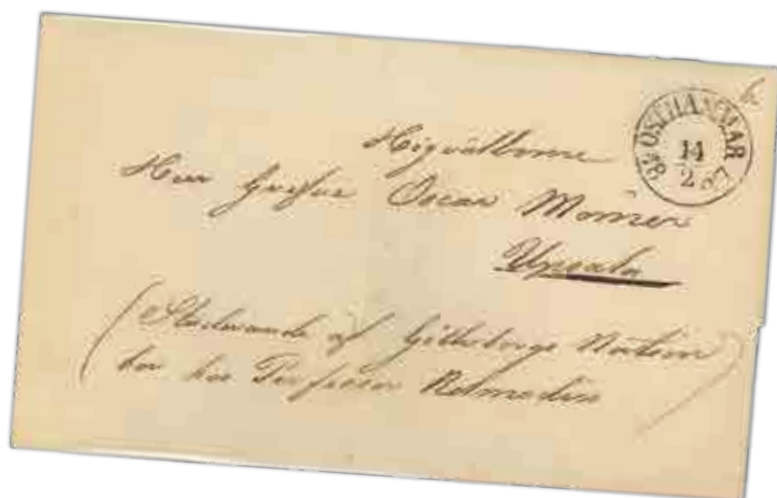 ÖSTHAMMAR
14
2
Högvälborne
Herr Grefve Oscar Mörner
Upsala
(Studerande af Götheborgs Nation
bor hos Professor Malmsten)